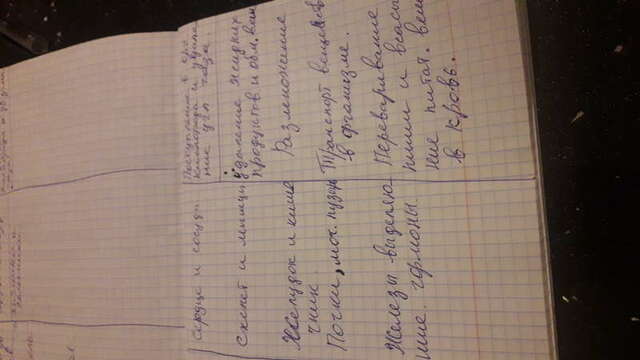 Сердце и сосуды
Скелет и мышцы
Желудок и кише
чник.
Почки, моч. пузырь
Железы выделяю-
щие гормоны.
Поступление в орг.
кислорода и удале
ние угл газа
Удаление жидких
продуктов и обм. вещ
Размножение
Транспорт веществ
в организме.
Переваривание
пищи и всасы
ние питат. вещ
в кровь.